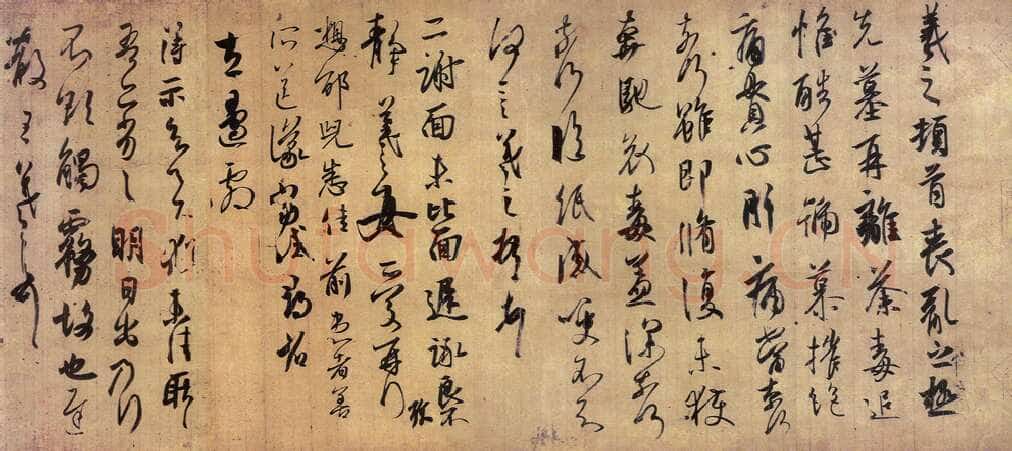 羲之頓首喪亂之極
先墓再離荼毒追
惟酷甚號慕摧絕
痛貫心肝痛當奈何
奈何雖即脩復未獲
奔馳哀毒益深奈何
奈何臨紙感哽不知
何言羲之頓首頓首
二謝面未比面遲詠良不
靜羲之女愛再拜
想邰兒悉佳前患者善
所送議當試尋省
左邊劇
得示知足下猶未佳耿耿
吾亦劣劣明日出乃行
不欲觸霧故也遲
散王羲之頓首
Shufawang.CN